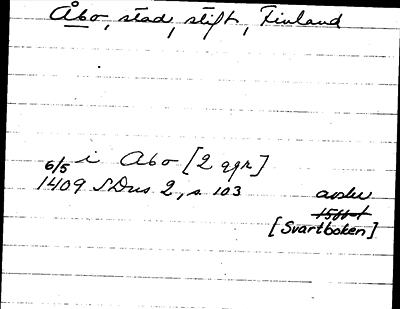 Åbo, stad, stift, Finland
6/5 i Abo [2 ggr]
1409 SDns 2, s 103
avskr
[Svartboken]